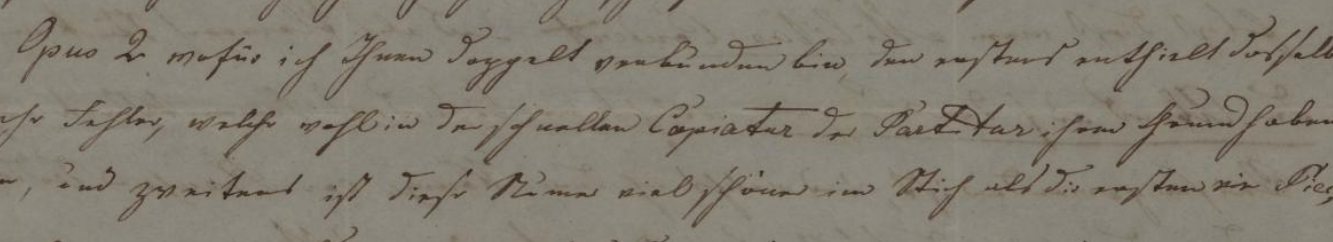 Opus 2 wofür ich Ihnen doppelt verbunden bin, den erstens enthielt dasselb
ehr Fehler, welche wohl in der schnellen Copiatur der Partitur ihren Grund haben
und zweitens ist diese Nume viel schöner im Stich als die ersten